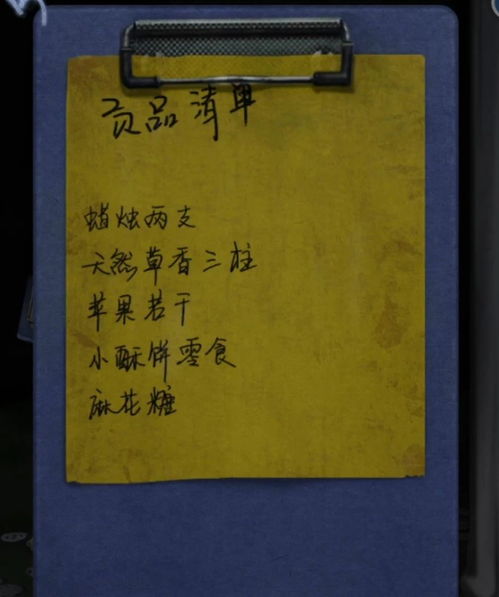 贡品清单
蜡烛两支
天然草香三柱
苹果若干
小酥饼零食
麻花糖